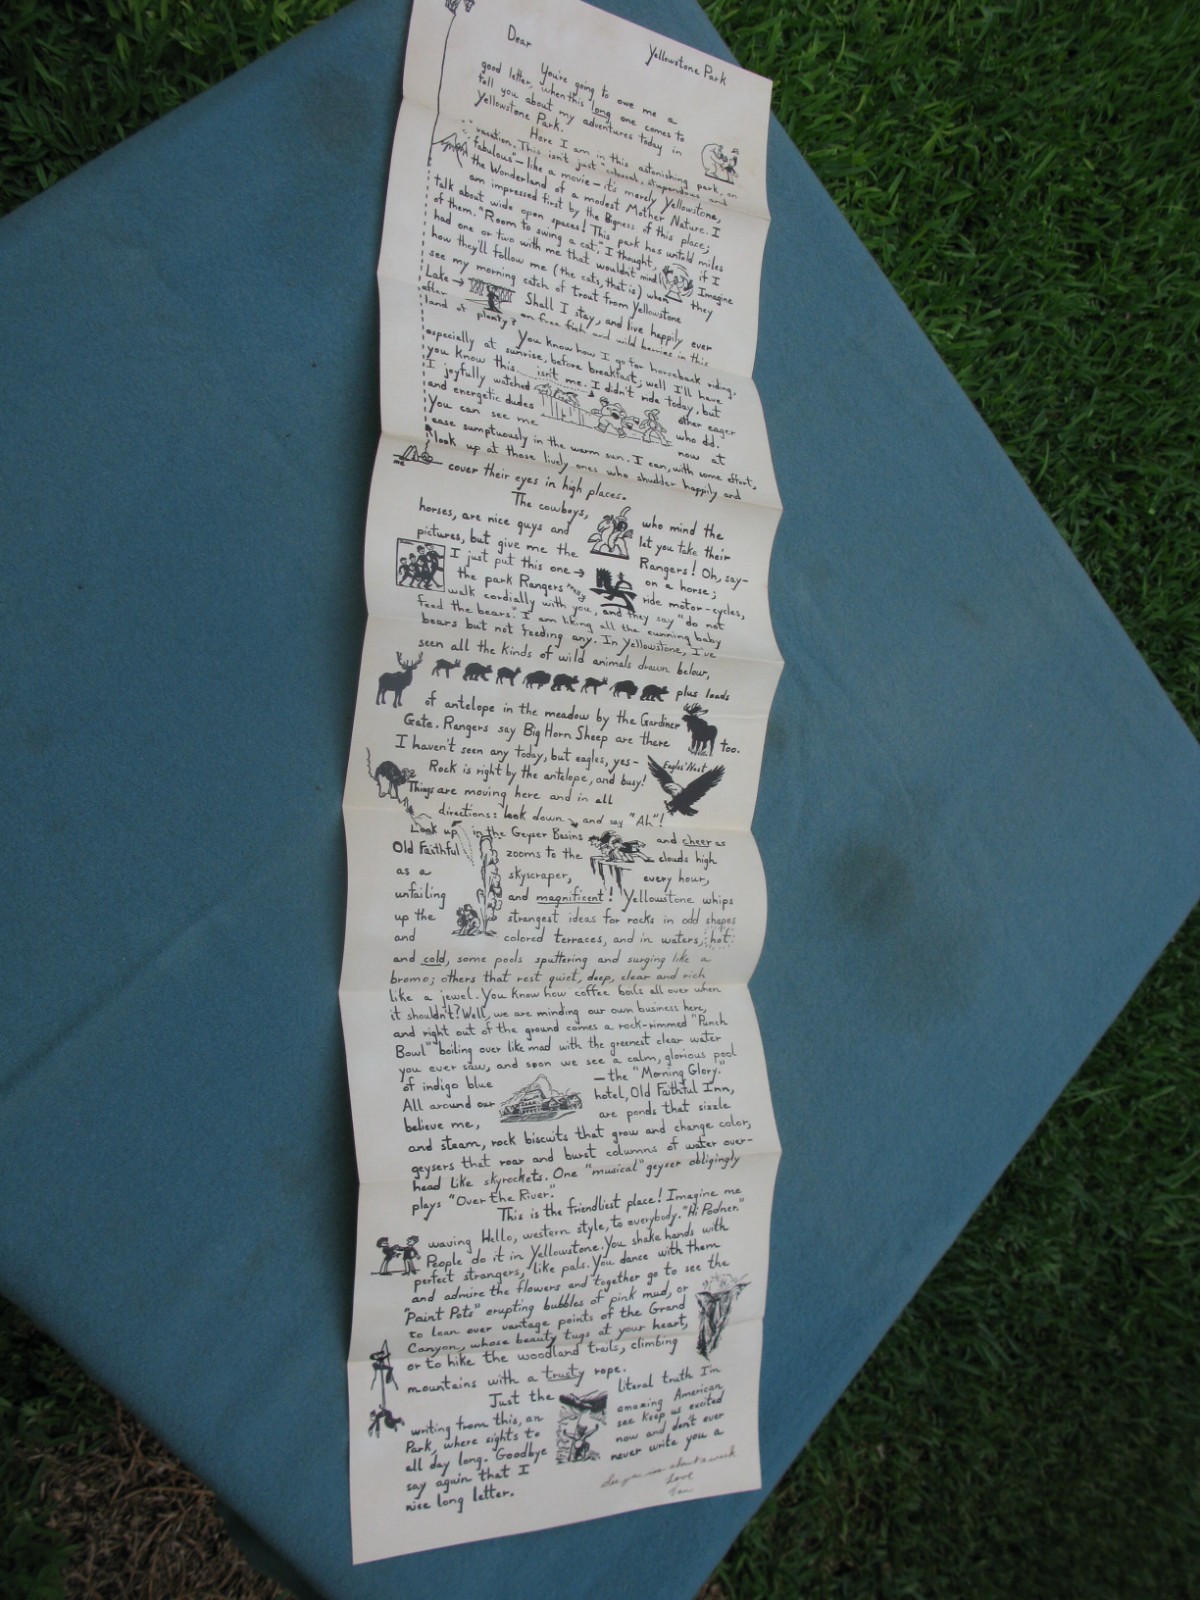 Dear Yellowstone Park
You're going to owe me a
good letter, when this long one comes to
tell you about my adventures today in
Yellowstone Park.
Here I am in this astonishing park, on
vacation. This isn't just "colossal, stupendous and
fabulous" - like a movie - it's merely Yellowstone,
the Wonderland of a modest Mother Nature. I
am impressed first by the Bigness of this place;
talk about wide open spaces! This park has untold miles
of them. "Room to swing a cat," I thought, if I
had one or two with me that wouldn't mind. Imagine
how they'll follow me (the cats, that is) when they
see my morning catch of trout from Yellowstone
Lake → Shall I stay, and live happily ever
after on free fish and wild berries in this
land of plenty?
You know how I go for horseback riding,
especially at sunrise, before breakfast; well I'll have
you know this isn't me. I didn't ride today, but
I joyfully watched other eager
and energetic dudes who did.
You can see me now at
ease sumptuously in the warm sun. I can, with some effort,
look up at those lively ones who shudder happily and
me cover their eyes in high places.
The cowboys, who mind the
horses, are nice guys and let you take their
pictures, but give me the Rangers! Oh, say-
I just put this one → on a horse;
the park Rangers ride motor-cycles,
walk cordially with you, and they say "do not
feed the bears." I am liking all the cunning baby
bears but not feeding any. In Yellowstone, I've
seen all the kinds of wild animals drawn below,
plus loads
of antelope in the meadow by the Gardiner
Gate. Rangers say Big Horn Sheep are there too.
I haven't seen any today, but eagles, yes-
Eagles' Nest
Rock is right by the antelope, and busy!
Things are moving here and in all
directions: look down and say "Ah"!
Look up in the Geyser Basins and cheer as
Old Faithful zooms to the clouds high
as a skyscraper, every hour,
unfailing and magnificent! Yellowstone whips
up the strangest ideas for rocks in odd shapes
and colored terraces, and in waters, hot
and cold, some pools sputtering and surging like a
bromo; others that rest quiet, deep, clear and rich
like a jewel. You know how coffee boils all over when
it shouldn't? Well, we are minding our own business here,
and right out of the ground comes a rock-rimmed "Punch
Bowl" boiling over like mad with the greenest clear water
you ever saw, and soon we see a calm, glorious pool
of indigo blue - the "Morning Glory."
All around our hotel, Old Faithful Inn,
believe me, are ponds that sizzle
and steam, rock biscuits that grow and change color,
geysers that roar and burst columns of water over-
head like skyrockets. One "musical" geyser obligingly
plays "Over the River."
This is the friendliest place! Imagine me
waving Hello, western style, to everybody. "Hi Podner."
People do it in Yellowstone. You shake hands with
perfect strangers, like pals. You dance with them
and admire the flowers and together go to see the
"Paint Pots" erupting bubbles of pink mud, or
to lean over vantage points of the Grand
Canyon, whose beauty tugs at your heart,
or to hike the woodland trails, climbing
mountains with a trusty rope.
Just the literal truth I'm
writing from this, an amazing American
Park, where sights to see keep us excited
all day long. Goodbye now and don't ever
say again that I never write you a
nice long letter.
See you in about a week
Love